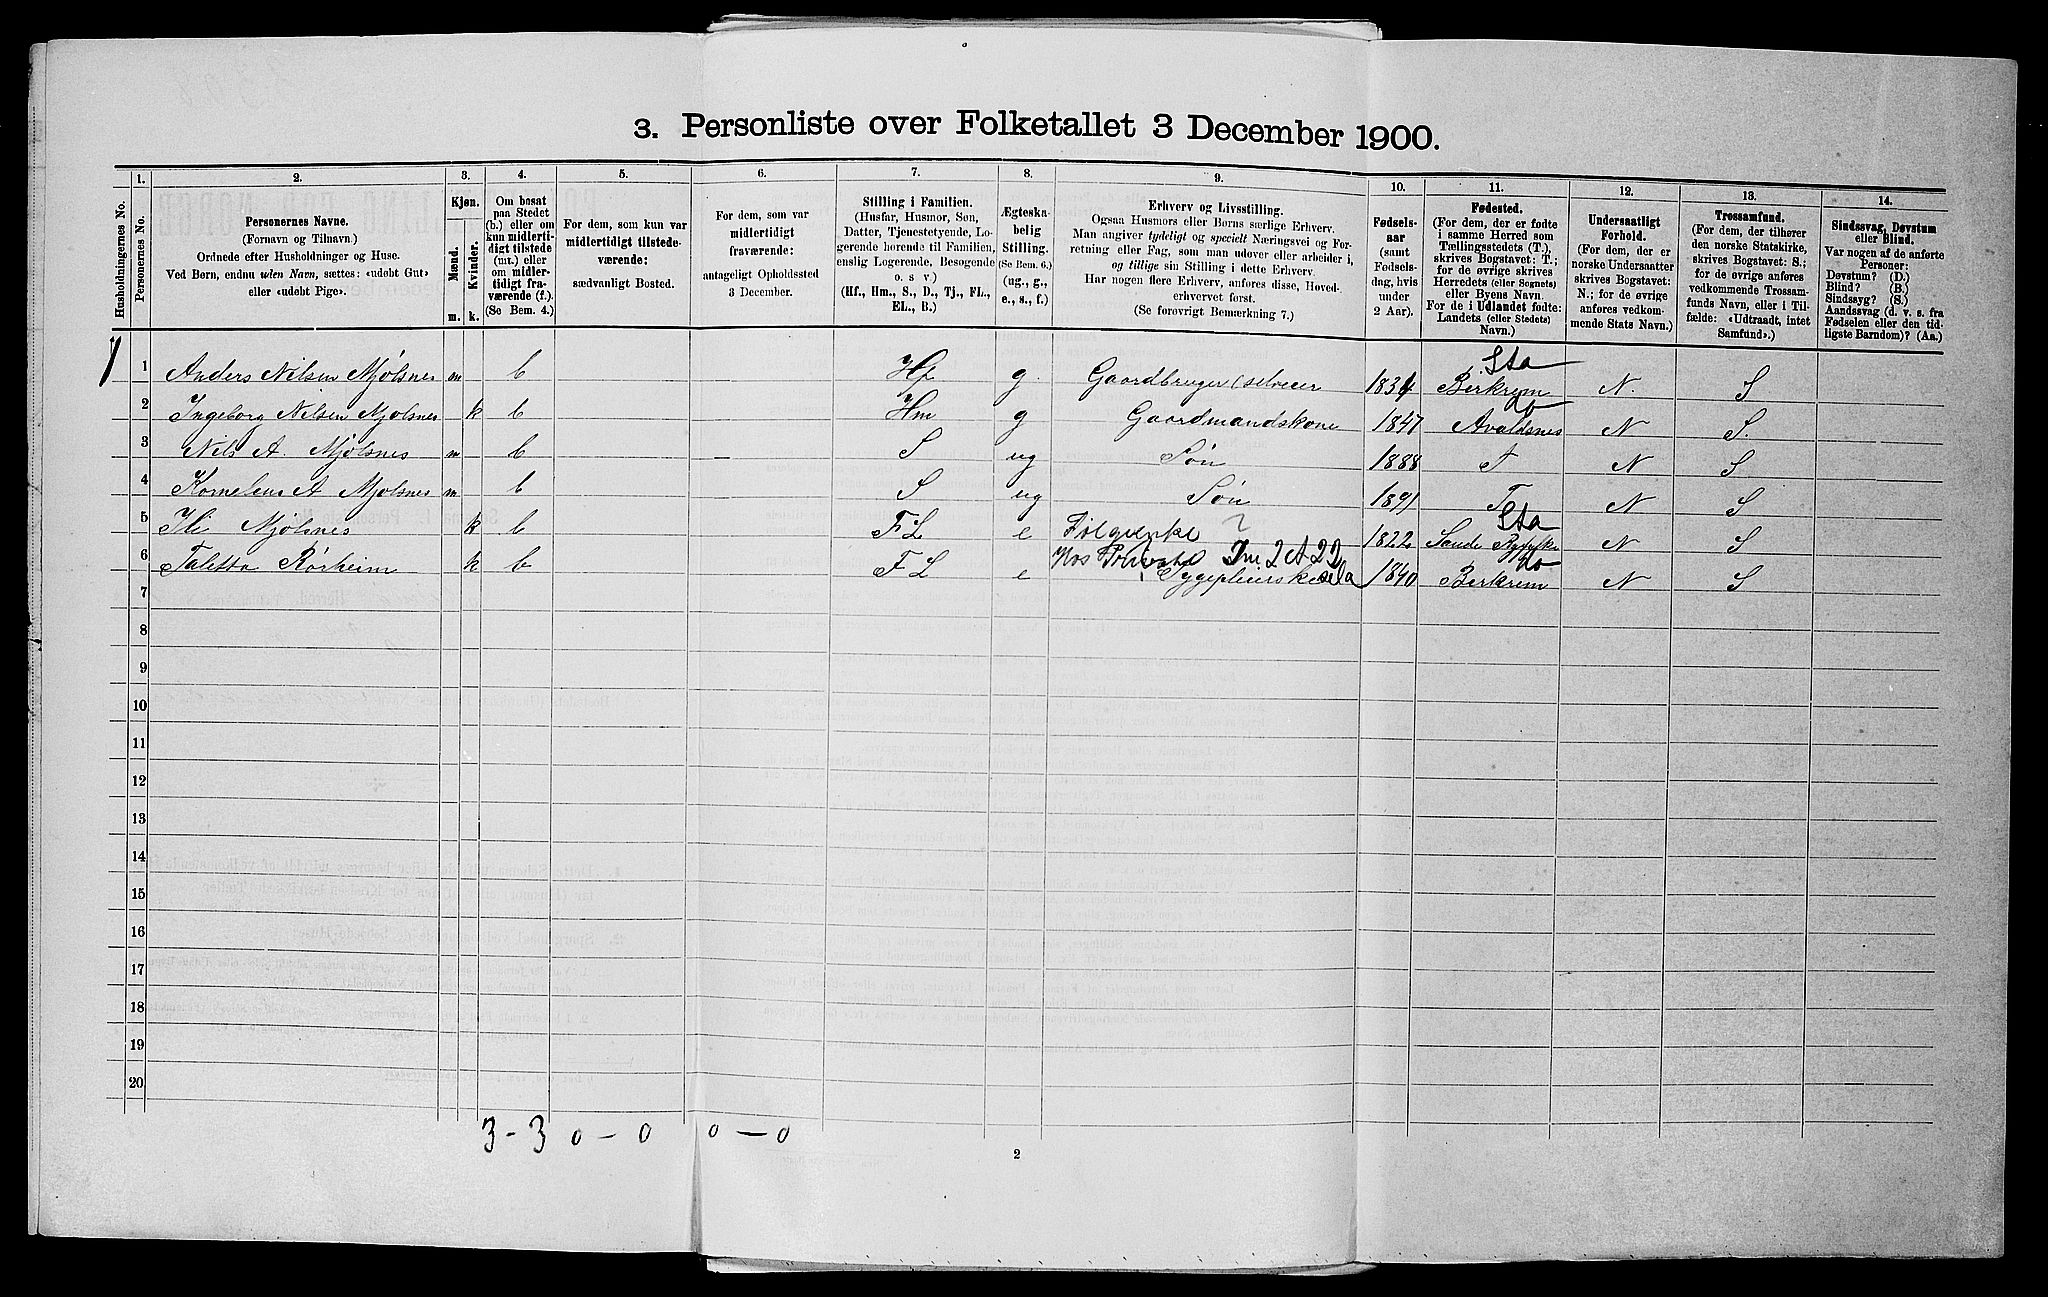 3. Personliste over Folketallet 3 December 1900.
Husholdningernes No.
1.
Personernes No.
2.
Personernes Navne.
(Fornavn og Tilnavn.)
Ordnede efter Husholdninger og Huse.
Ved Børn, endnu uden Navn, sættes: «udøbt Gut»
eller «udøbt Pige».
3.
Kjøn.
Mænd.
Kvinder.
m.
k.
4.
Om bosat
paa Stedet
(b.) eller om
kun midlerti-
digt tilstede
(mt.) eller
om midler-
tidigt fra-
værende (f.).
(Se Bem. 4.)
5.
For dem, som kun var
midlertidigt tilstede-
værende:
sædvanligt Bosted.
6.
For dem, som var
midlertidigt
fraværende:
antageligt Opholdssted
3 December.
7.
Stilling i Familien.
(Husfar, Husmor, Søn,
Datter, Tjenestetyende, Lo-
gerende hørende til Familien,
enslig Logerende, Besøgende
o. s v.)
(Hf., Hm., S., D., Tj., FL.,
EL., B.)
8.
Ægteska-
belig
Stilling.
(Se Bem. 6.)
(ug., g.,
e., s., f.)
9.
Erhverv og Livsstilling.
Ogsaa Husmors eller Børns særlige Erhverv.
Man angiver tydeligt og specielt Næringsvei og For-
retning eller Fag, som man udøver eller arbeider i,
og tillige sin Stilling i dette Erhverv.
Har nogen flere Erhverv, anføres disse, Hoved-
erhvervet først.
(Se forøvrigt Bemærkning 7.)
10.
Fødsels-
aar
(samt
Fødsels-
dag, hvis
under
2 Aar).
11.
Fødested.
(For dem, der er fødte
i samme Herred som
Tællingsstedets (T.),
skrives Bogstavet: T.;
for de øvrige skrives
Herredets (eller Sognets)
eller Byens Navn.
For de i Udlandet fødte:
Landets (eller Stedets)
Navn.)
12.
Undersaatligt
Forhold.
(For dem, der er
norske Undersaatter
skrives Bogstavet:
N.; for de øvrige
anføres vedkom-
mende Stats Navn.)
13.
Trossamfund.
(For dem, der tilhører
den norske Statskirke,
skrives Bogstavet: S.;
for de øvrige anføres
vedkommende Trossam-
funds Navn, eller i Til-
fælde: «Udtraadt, intet
Samfund».)
14.
Sindssvag, Døvstum
eller Blind.
Var nogen af de anførte
Personer:
Døvstum? (D.)
Blind? (B.)
Sindssyg? (S.)
Aandssvag (d. v. s. fra
Fødselen eller den tid-
ligste Barndom)? (Aa.)
Sta
1 1 Anders Nilsen Mjølsnes m b Hf g. Gaardbruger selveier 1834 Birkrem N. S
do
2 Ingeborg Nilsen Mjolsnes k b Hm g Gaardmandskone 1847 Avaldsnes N S.
3 Nils A. Mjølsnes m b S ug Søn 1888 T N S
4 Kornelius A Mjolsnes m b S ug Søn 1891 T N S
Sta
5 Ili Mjølsnes k b FL e Følgeenke ? 1822 Sande Ryfylke N S
Hos Private Dm 2 A 22 do
6 Taletta Rørheim k b FL e Sygepleierske sela 1840 Birkrem N S
7
8
9
10
11
12
13
14
15
16
17
18
19
20
3 - 3 0 - 0 0 - 0
2